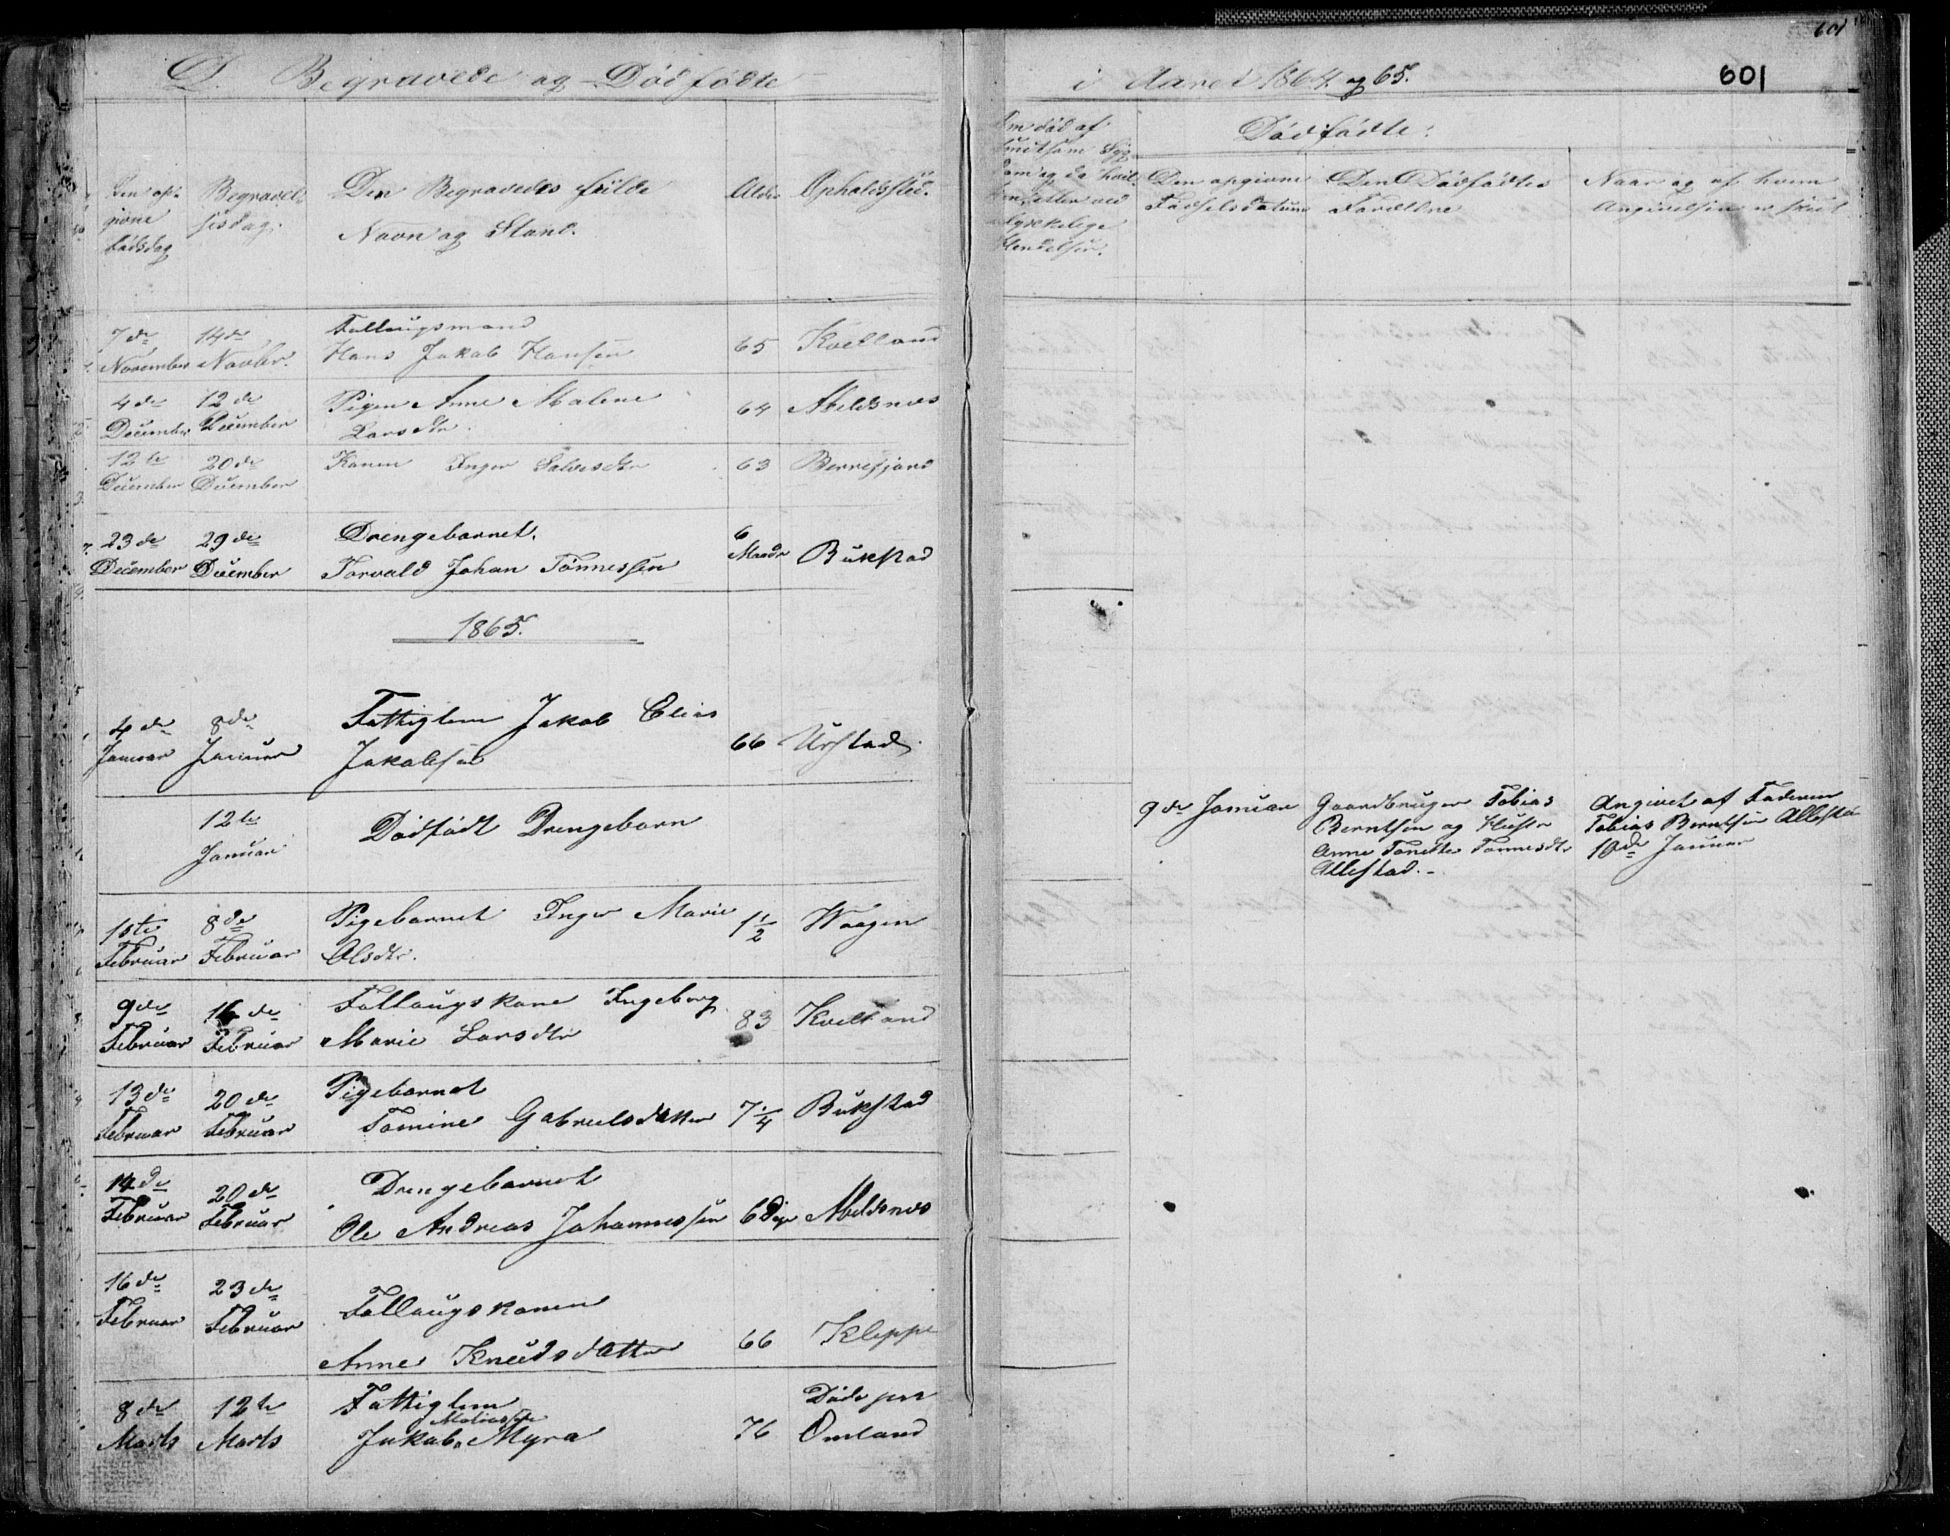 D. Begravede og Dødfødte
i Aaret 1864 og 65.
601
601
Den opgivne Dødsdag
Begravelsesdag.
Den Begravedes fulde
Navn og Stand.
Alder
Opholdssted.
Dødfødte:
Den opgivne
Fødselsdatum
Den Dødfødtes
Forældre
Naar og af hvem
Angivelsen er skeet
7de November
14de Novbr.
Follaugsmand
Hans Jakob Hansen
65
Kvelland
4de December
12de December
Pigen Anne Malene
Larsdtr.
64
Abelsnes
12te December
20de December
Konen Inger Salvesdtr
63
Berrefjord
23de December
29de December
Drengebarnet.
Torvald Johan Tønnessen
6 Maadr
Bukstad
1865.
4de Januar
8de Januar
Fattiglem Jakob Elias
Jakobsen
66
Urstad.
12te
Januar
Dødfødt Drengebarn
9de Januar
Gaardbruger Tobias
Berntsen og Hustr
Anne Tonette Tønnesdtr
Allestad.-
Angivet af Faderen
Tobias Berntsen Allesta
10de Januar
1ste Februar
8de Februar
Pigebarnet Inger Marie
Olsdtr.
1 1/2
Waagen
9de Februar
16de Februar
Follaugskone Ingeborg
Marie Larsdtr
83
Kvelland
13de Februar
20de Februar
Pigebarnet
Tomine Gabrielsdatter
7 1/4
Bukstad
14de Februar
20de Februar
Drengebarnet
Ole Andreas Johannessen
6 Dage
Abeldsnes
16de Februar
23de Februar
Follaugskonen
Anne Knudsdatter
66
Kleppe
8de Marts
12te Marts
Fattiglem
Jakob Mathiassen Myra
76
Døde paa
Omland